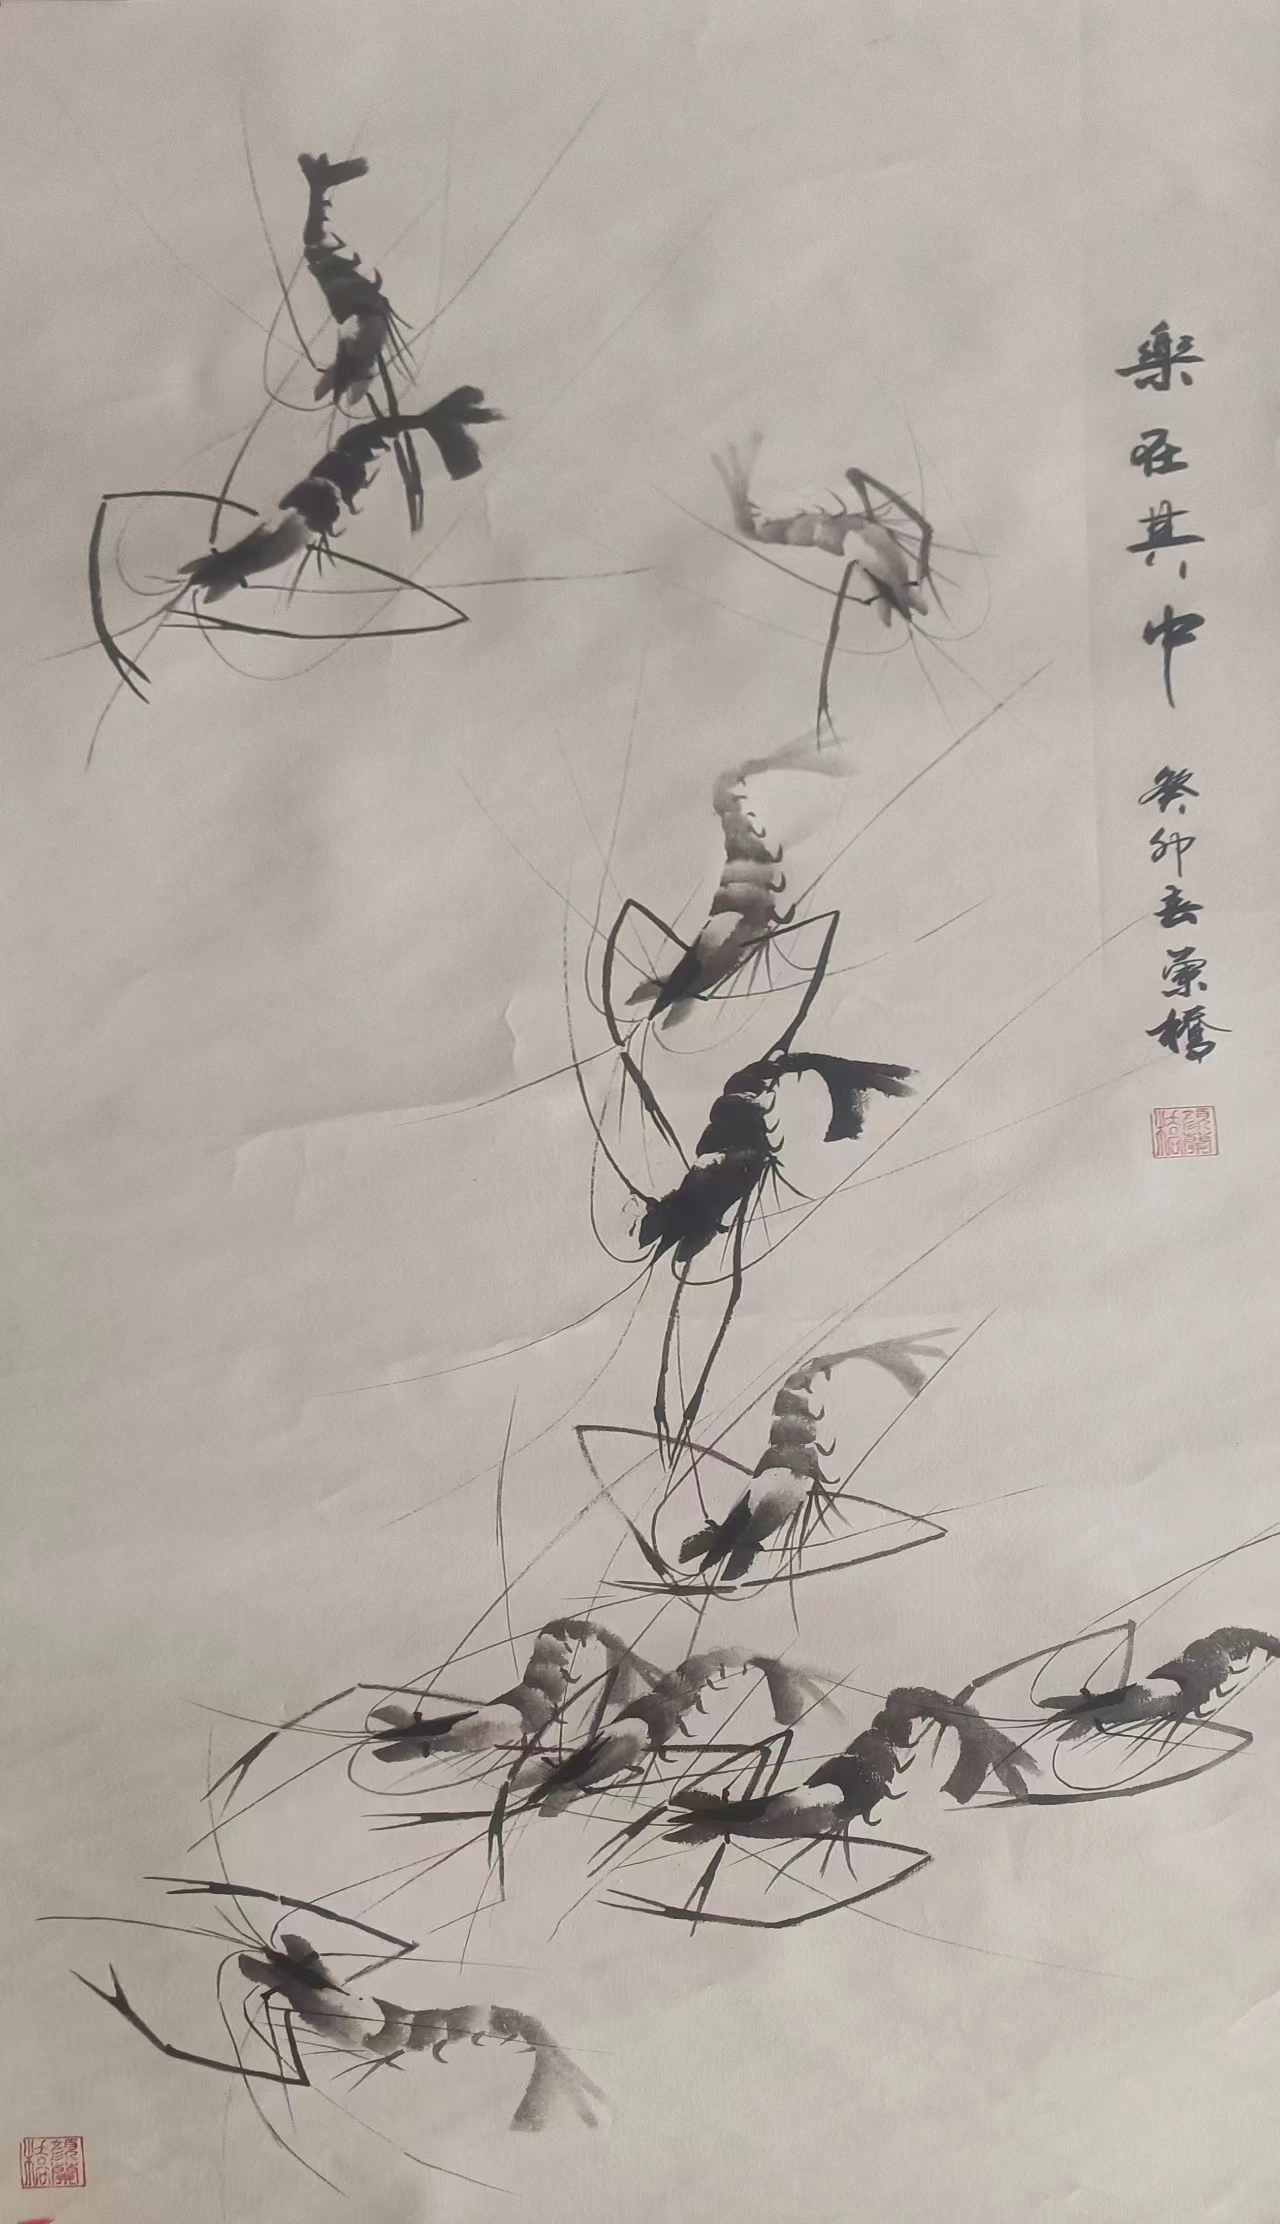 樂在其中
癸卯春榮橋